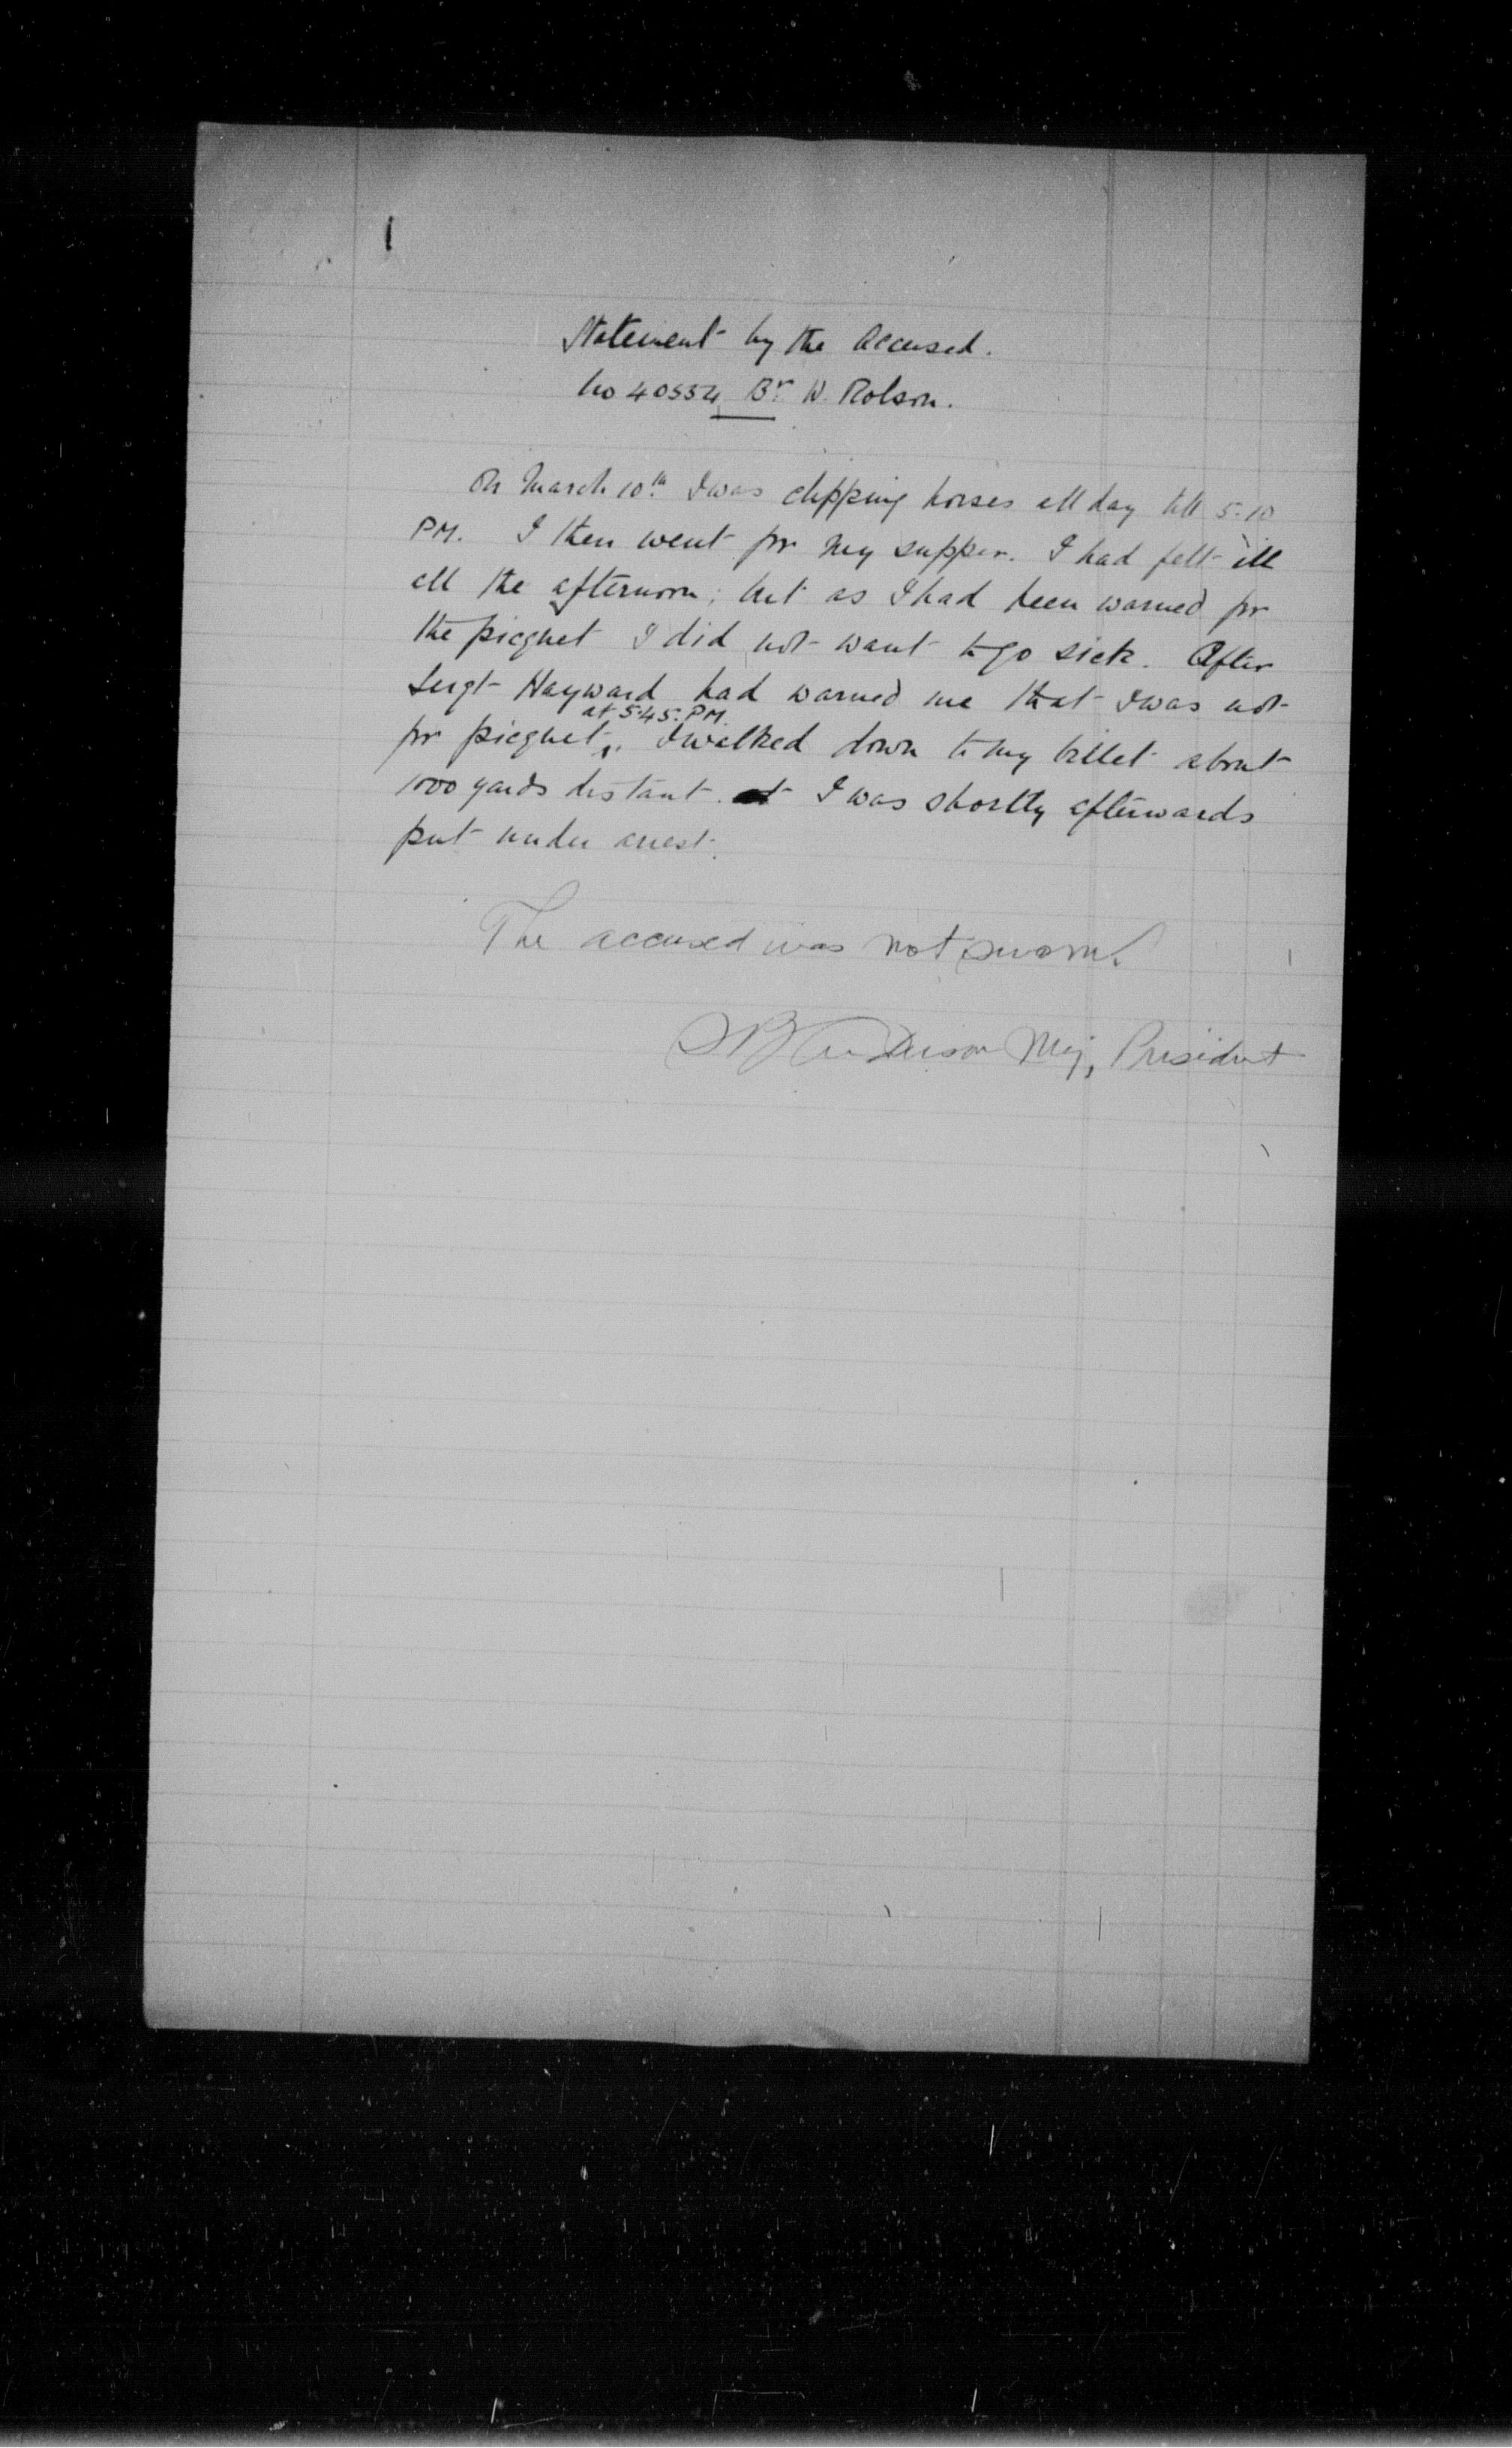 Statement by the Accused.
No 40554 Br W. Rolson.
On March 10th I was clipping horses all day till 5.10
PM. I then went for my supper. I had felt ill
all the afternoon; but as I had been warned for
the picquet I did not want to go sick. After
Sergt Hayward had warned me that I was not
at 5.45. PM.
for picquet, I walked down to my billet about
1000 yards distant. I was shortly afterwards
put under arrest.
The accused was not sworn.
Anderson Maj, President